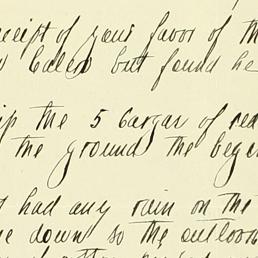 ceipt of your favor of th
Calen but found he
ip the 5 Cargar of rea
the ground the beg
had any rain on the
e down so the outlook